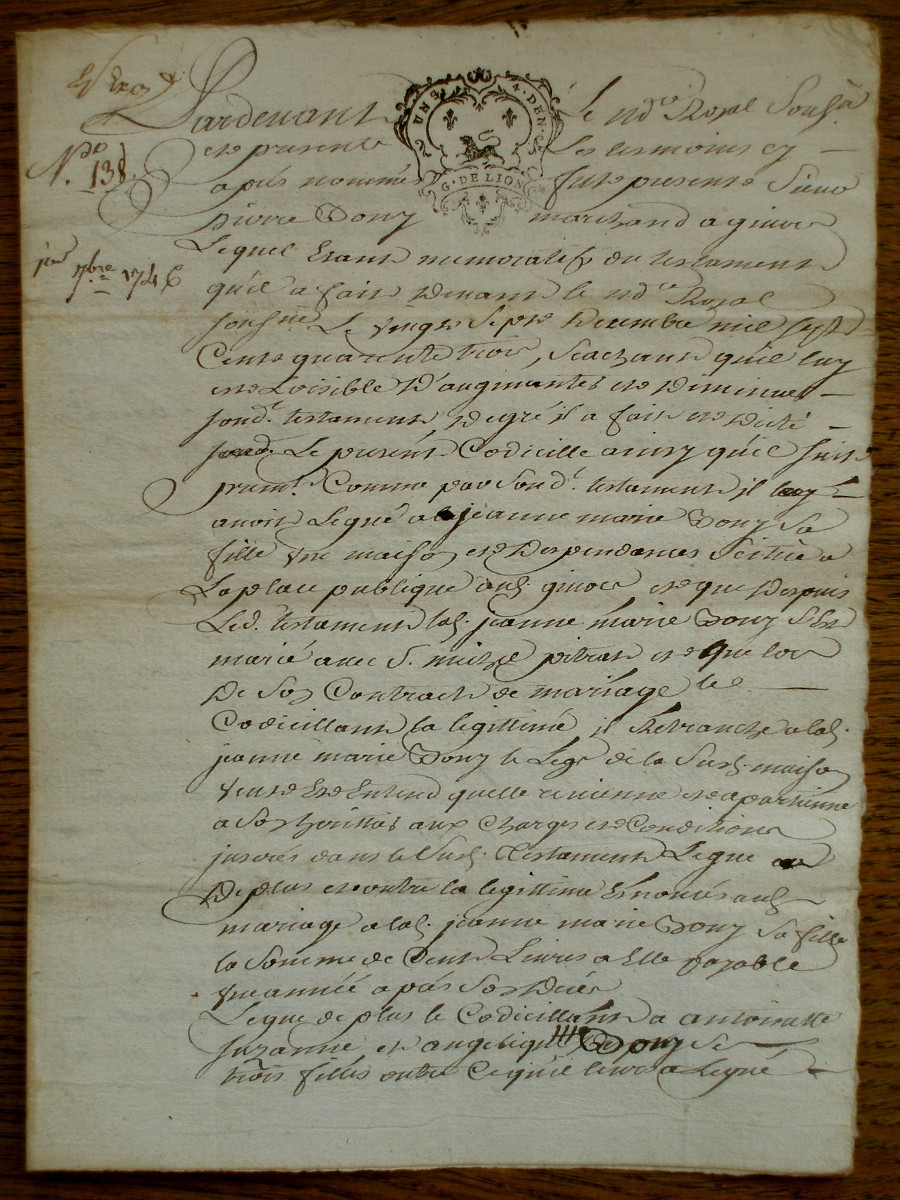 Pardevant le nore Royal Sousné
UN S. 4. DEN.
G. DE LION
No. 138
et presents Les tesmoins cy
apres nommés fut present Sieur
pierre Dony marchand a givors
jer 7bre 1746
Lequel Etant memoratif du testament
qu'il a fait Devant le nore Royal
sousné Le vingt Sept Decembre mil sept
Cent quarente trois, Scachant qu'il luy
est Loisible D'augmanter et Diminuer
sond. testament, De gré il a fait et Dicté
Le present Codicille ainsy qu'il suit
premt. Comme par Sond. testament il
avoit Legué a jeanne marie Dony Sa
fille une maison et Dependances Scitué a
La place publique aud. givors et que Despuis
Led. testament lad. jeanne marie Dony S'Est
marié avec S. pitrat et que lors
De Son Contract de mariage le
Codicillant la legittimé il Retranche a lad.
jeanne marie Dony le Legs de la Susd. maison
Veut Et Entend quelle revienne et apartienne
a Son heritier aux Charges et Conditions
inserés dans le Susd. testament Legue
De plus et outre la legittime Enoncés aud.
mariage a lad. jeanne marie Dony Sa fille
la Somme de Cent Livres a Elle payable
Une année apres Son Decés
Legue de plus le Codicillant a antoinette
suzanne et angelique Dony Se
trois filles outre Ce qu'il leurs a Legué